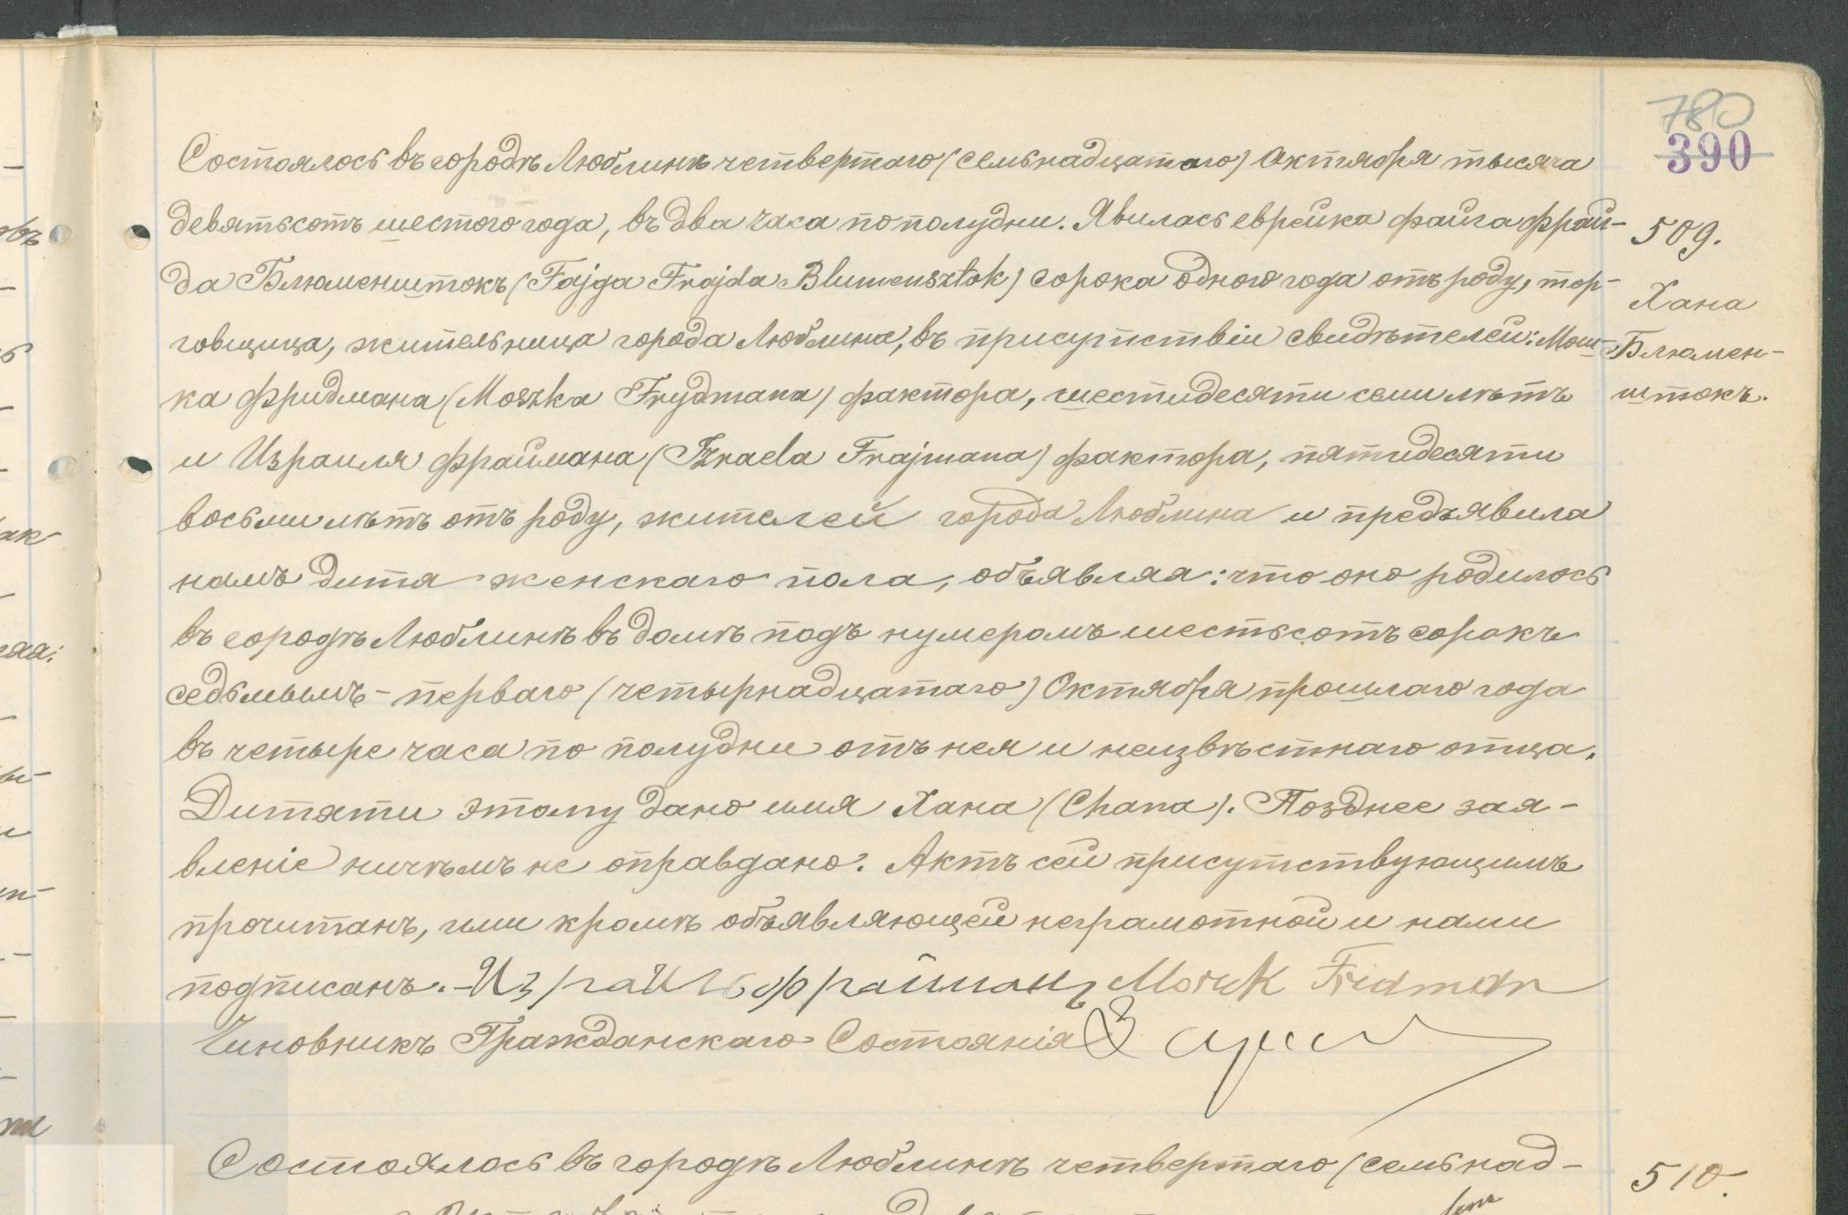 780
390
Состоялось въ городѣ Люблинѣ четвертаго (семьнадцатаго) Октября тысяча
девятьсотъ шестого года, въ два часа по полудни. Явилась еврейка Файга Фрай-
да Блюменштокъ (Fajga Frajda Blumensztok) сорока одного года отъ роду, тор-
говщица, жительница города Люблина, въ присутствіи свидѣтелей: Мош-
ка Фридмана (Moszka Frydmana) фактора, шестидесяти семи лѣтъ
и Израиля Фраймана (Izraela Frajmana) фактора, пятидесяти
восьми лѣтъ отъ роду, жителей города Люблина и предъявила
намъ дитя женскаго пола, объявляя: что оно родилось
въ городѣ Люблинѣ въ домѣ подъ нумеромъ шестьсотъ сорокъ
седьмымъ - перваго (четырнадцатаго) Октября прошлаго года
въ четыре часа по полудни отъ нея и неизвѣстнаго отца.
Дитяти этому дано имя Хана (Chana). Позднее зая-
вленіе ничѣмъ не оправдано. Актъ сей присутствующимъ
прочитанъ, ими кромѣ объявляющей неграмотной и нами
подписанъ. - Израиль Фрайманъ Moszk Fridman
Чиновникъ Гражданскаго Состоянія
509.
Хана
Блюмен-
штокъ.
Состоялось въ городѣ Люблинѣ четвертаго (семьнад-
510.